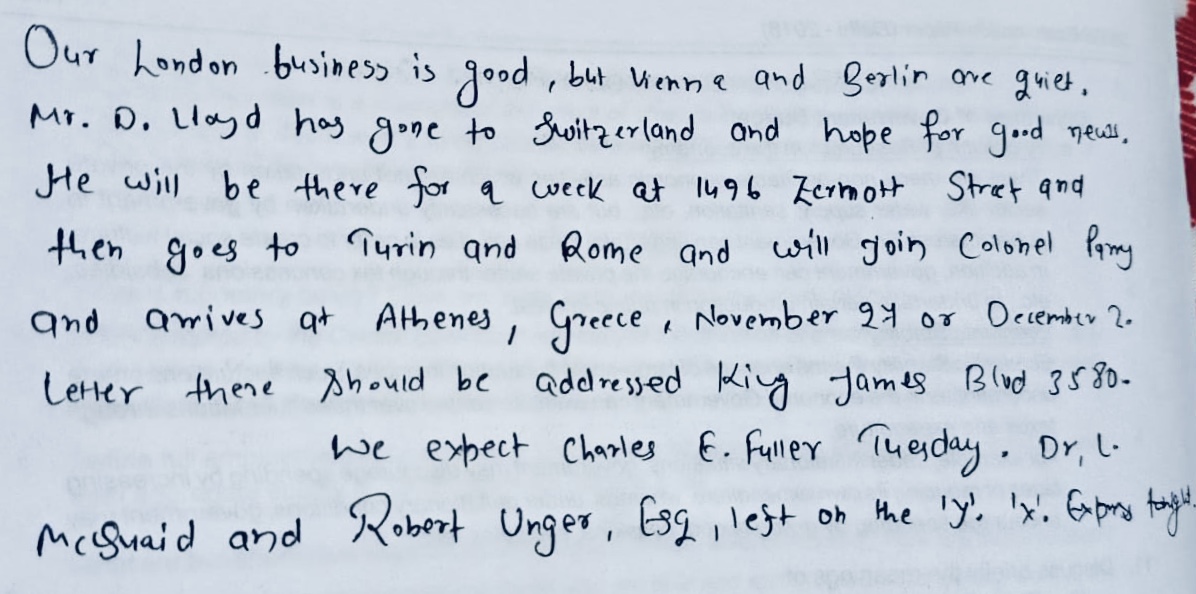 Our London business is good, but Vienna and Berlin are quiet.
Mr. D. Lloyd has gone to Switzerland and hope for good news.
He will be there for a week at 1496 Zermott Street and
then goes to Turin and Rome and will join Colonel Parry
and arrives at Athenes, Greece, November 27 or December 2.
Letter there should be addressed King James Blvd 3580.
We expect Charles E. Fuller Tuesday. Dr, L.
McQuaid and Robert Unger, Esq, left on the 'Y. X. Express